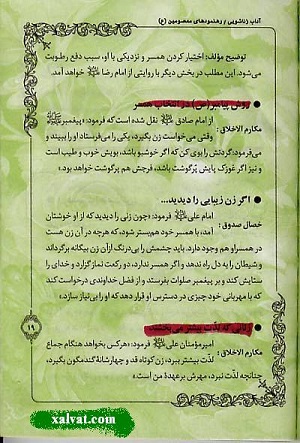 آداب زناشویی / رهنمودهای معصومین (ع)
توضیح مؤلف: اختیار کردن همسر و نزدیکی با او، سبب دفع رطوبت
می‌شود. این مطلب در بخش دیگر با روایتی از امام رضا خواهد آمد.
روش پیامبر(ص) در انتخاب همسر
مکارم الاخلاق:
از امام صادق نقل شده است که فرمود: «پیغمبر
وقتی می‌خواست زن بگیرد، یکی را می‌فرستاد او را ببیند و
می‌فرمود: گردنش را بوی کن که اگر خوشبو باشد، بویش خوب و طیب است
و نیز اگر غوزک پایش پُرگوشت باشد، فرجش هم پرگوشت خواهد بود.»
اگر زن زیبایی را دیدید...
خصال صدوق:
امام علی فرمود: «چون زنی را دیدید که از او خوشتان
آمد، با همسر خود هم‌بستر شوید، که هرچه در آن زن هست
در همسر او هم وجود دارد. باید چشمش را بی‌درنگ از آن زن بیگانه برگرداند
و شیطان را به دل راه ندهد و اگر همسر ندارد، دو رکعت نماز گزارد و خدای را
ستایش کند و بر پیغمبر صلوات بفرستد و از فضل خداوندی درخواست کند
که با مهربانی خود چیزی در دسترس او قرار دهد که او را بی‌نیاز سازد.»
زنانی که لذّت بیشتر می‌بخشند
مکارم الاخلاق:
امیرمؤمنان فرمود: «هرکس بخواهد هنگام جماع
لذّت بیشتر ببرد، زن کوتاه قد و چهارشانهٔ گندمگون بگیرد،
چنانچه لذّت نبرد، مهرش برعهدهٔ من است.»
۱۹
xalvat.com